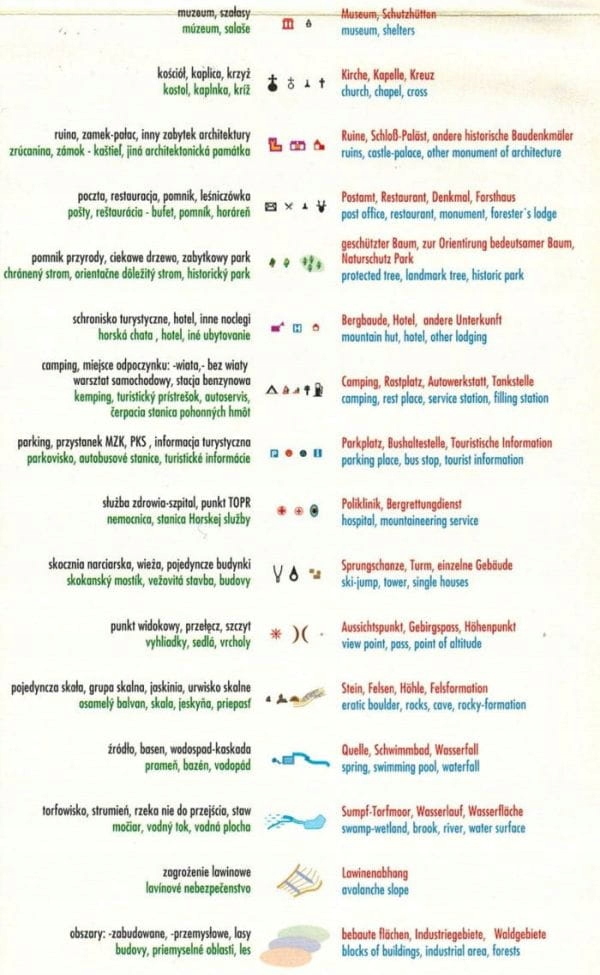 muzeum, szałasy
múzeum, salaše
Museum, Schutzhütten
museum, shelters
kościół, kaplica, krzyż
kostol, kaplnka, kríž
Kirche, Kapelle, Kreuz
church, chapel, cross
ruina, zamek-pałac, inny zabytek architektury
zrúcanina, zámok - kaštieľ, jiná architektonická památka
Ruine, Schloß-Paläst, andere historische Baudenkmäler
ruins, castle-palace, other monument of architecture
poczta, restauracja, pomnik, leśniczówka
pošty, reštaurácia - bufet, pomník, horáreň
Postamt, Restaurant, Denkmal, Forsthaus
post office, restaurant, monument, forester's lodge
pomnik przyrody, ciekawe drzewo, zabytkowy park
chránený strom, orientačne dôležitý strom, historický park
geschützter Baum, zur Orientirung bedeutsamer Baum,
Naturschutz Park
protected tree, landmark tree, historic park
schronisko turystyczne, hotel, inne noclegi
horská chata , hotel, iné ubytovanie
Bergbaude, Hotel, andere Unterkunft
mountain hut, hotel, other lodging
camping, miejsce odpoczynku: -wiata,- bez wiaty
warsztat samochodowy, stacja benzynowa
kemping, turistický prístrešok, autoservis,
čerpacia stanica pohonných hmôt
Camping, Rastplatz, Autowerkstatt, Tankstelle
camping, rest place, service station, filling station
parking, przystanek MZK, PKS , informacja turystyczna
parkovisko, autobusové stanice, turistické informácie
P
i
Parkplatz, Bushaltestelle, Touristische Information
parking place, bus stop, tourist information
służba zdrowia-szpital, punkt TOPR
nemocnica, stanica Horskej služby
Poliklinik, Bergrettungdienst
hospital, mountaineering service
skocznia narciarska, wieża, pojedyncze budynki
skokanský mostík, vežovitá stavba, budovy
Sprungschanze, Turm, einzelne Gebäude
ski-jump, tower, single houses
punkt widokowy, przełęcz, szczyt
vyhliadky, sedlá, vrcholy
Aussichtspunkt, Gebirgspass, Höhenpunkt
view point, pass, point of altitude
pojedyncza skała, grupa skalna, jaskinia, urwisko skalne
osamelý balvan, skala, jeskyňa, priepasť
Stein, Felsen, Höhle, Felsformation
eratic boulder, rocks, cave, rocky-formation
źródło, basen, wodospad-kaskada
prameň, bazén, vodopád
Quelle, Schwimmbad, Wasserfall
spring, swimming pool, waterfall
torfowisko, strumień, rzeka nie do przejścia, staw
močiar, vodný tok, vodná plocha
Sumpf-Torfmoor, Wasserlauf, Wasserfläche
swamp-wetland, brook, river, water surface
zagrożenie lawinowe
lavínové nebezpečenstvo
Lawinenabhang
avalanche slope
obszary: -zabudowane, -przemysłowe, lasy
budovy, priemyselné oblasti, les
bebaute flächen, Industriegebiete, Waldgebiete
blocks of buildings, industrial area, forests